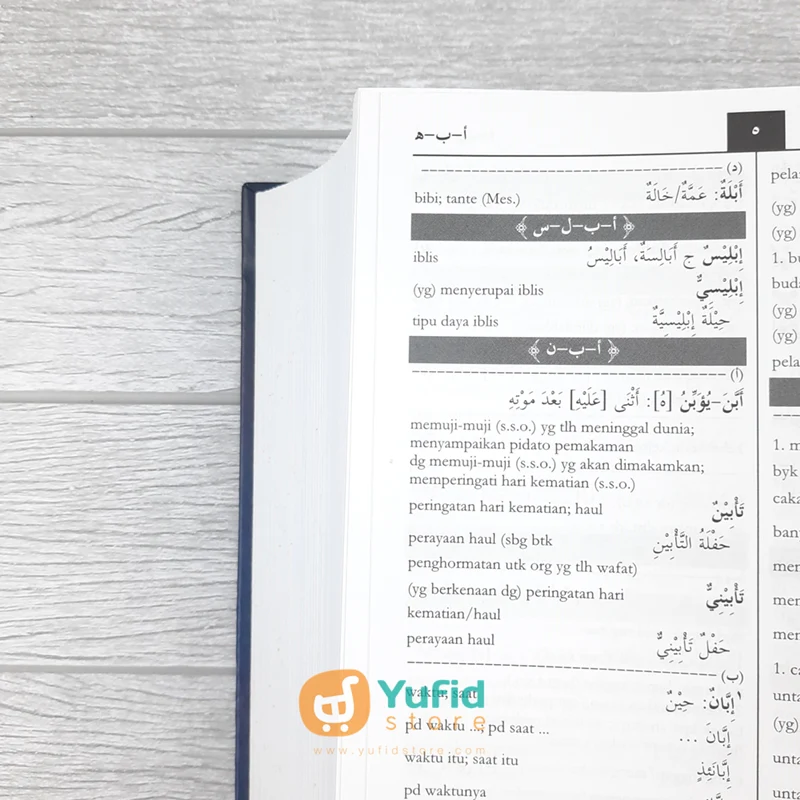 أ–ب–ه ٥
(د)
أَبْلَةٌ: عَمَّةٌ/خَالَةٌ bibi; tante (Mes.)
﴿ أ–ب–ل–س ﴾
إِبْلِيْسٌ ج أَبَالِسَةٌ، أَبَالِيْسُ iblis
إِبْلِيْسِيٌّ (yg) menyerupai iblis
حِيْلَةٌ إِبْلِيْسِيَّةٌ tipu daya iblis
﴿ أ–ب–ن ﴾
(أ)
أَبَّنَ–يُؤَبِّنُ [هُ]: أَثْنَى [عَلَيْهِ] بَعْدَ مَوْتِهِ
memuji-muji (s.s.o.) yg tlh meninggal dunia;
menyampaikan pidato pemakaman
dg memuji-muji (s.s.o.) yg akan dimakamkan;
memperingati hari kematian (s.s.o.)
تَأْبِيْنٌ peringatan hari kematian; haul
حَفْلَةُ التَّأْبِيْنِ perayaan haul (sbg btk
penghormatan utk org yg tlh wafat)
تَأْبِيْنِيٌّ (yg berkenaan dg) peringatan hari
kematian/haul
حَفْلٌ تَأْبِيْنِيٌّ perayaan haul
(ب)
١إِبَّانٌ: حِيْنٌ waktu; saat
إِبَّانَ ... pd waktu ...; pd saat ...
إِبَّانَئِذٍ waktu itu; saat itu
pd waktunya
pela
(yg)
(yg)
1. bu
buda
(yg)
(yg)
pela
1. m
byk
caka
ban
men
men
men
1. ca
unta
(yg)
unta
unta
Yufid
store
www.yufidstore.com